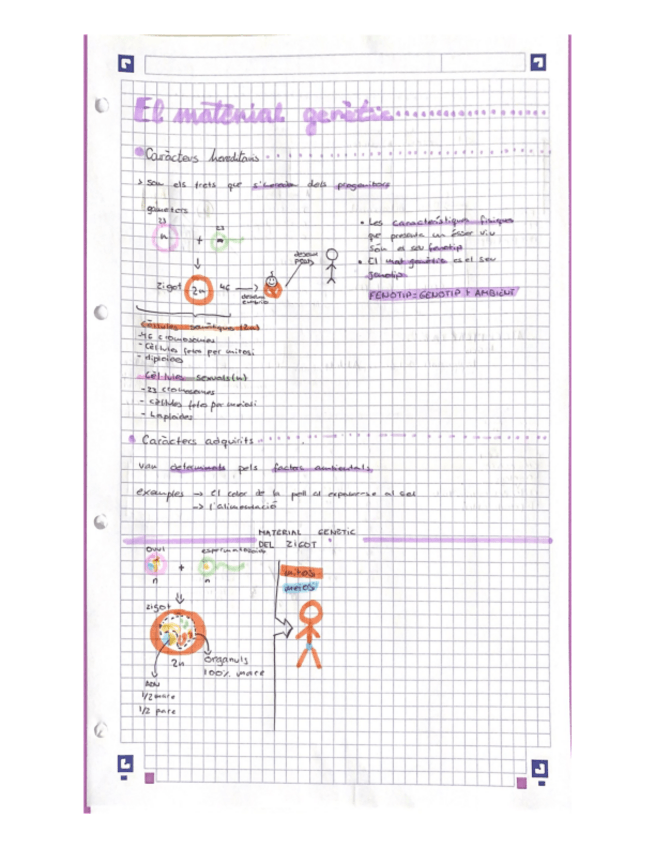 El material genètic
Caràcters hereditaris
> Són els trets que s'hereden dels progenitors
gametes
23
23
n
+
n
zigot
2n
46
desenv.
embrió
• Les característiques físiques
que presenta un ésser viu
són el seu fenotip
• El mat. genètic és el seu
genotip
FENOTIP = GENOTIP + AMBIENT
Cèl·lules somàtiques (2n)
- 46 cromosomes
- Cèl·lules fetes per mitosi
- diploides
Cèl·lules sexuals (n)
- 23 cromosomes
- cèl·lules fetes per meiosi
- haploides
Caràcters adquirits
Van determinats pels factors ambientals
exemples → El color de la pell al exposar-se al sol
→ l'alimentació
MATERIAL GENÈTIC
DEL ZIGOT
Òvul
espermatozoide
+
n
n
zigot
2n
orgànuls
100% mare
ADN
1/2 mare
1/2 pare
mitosi
meiosi